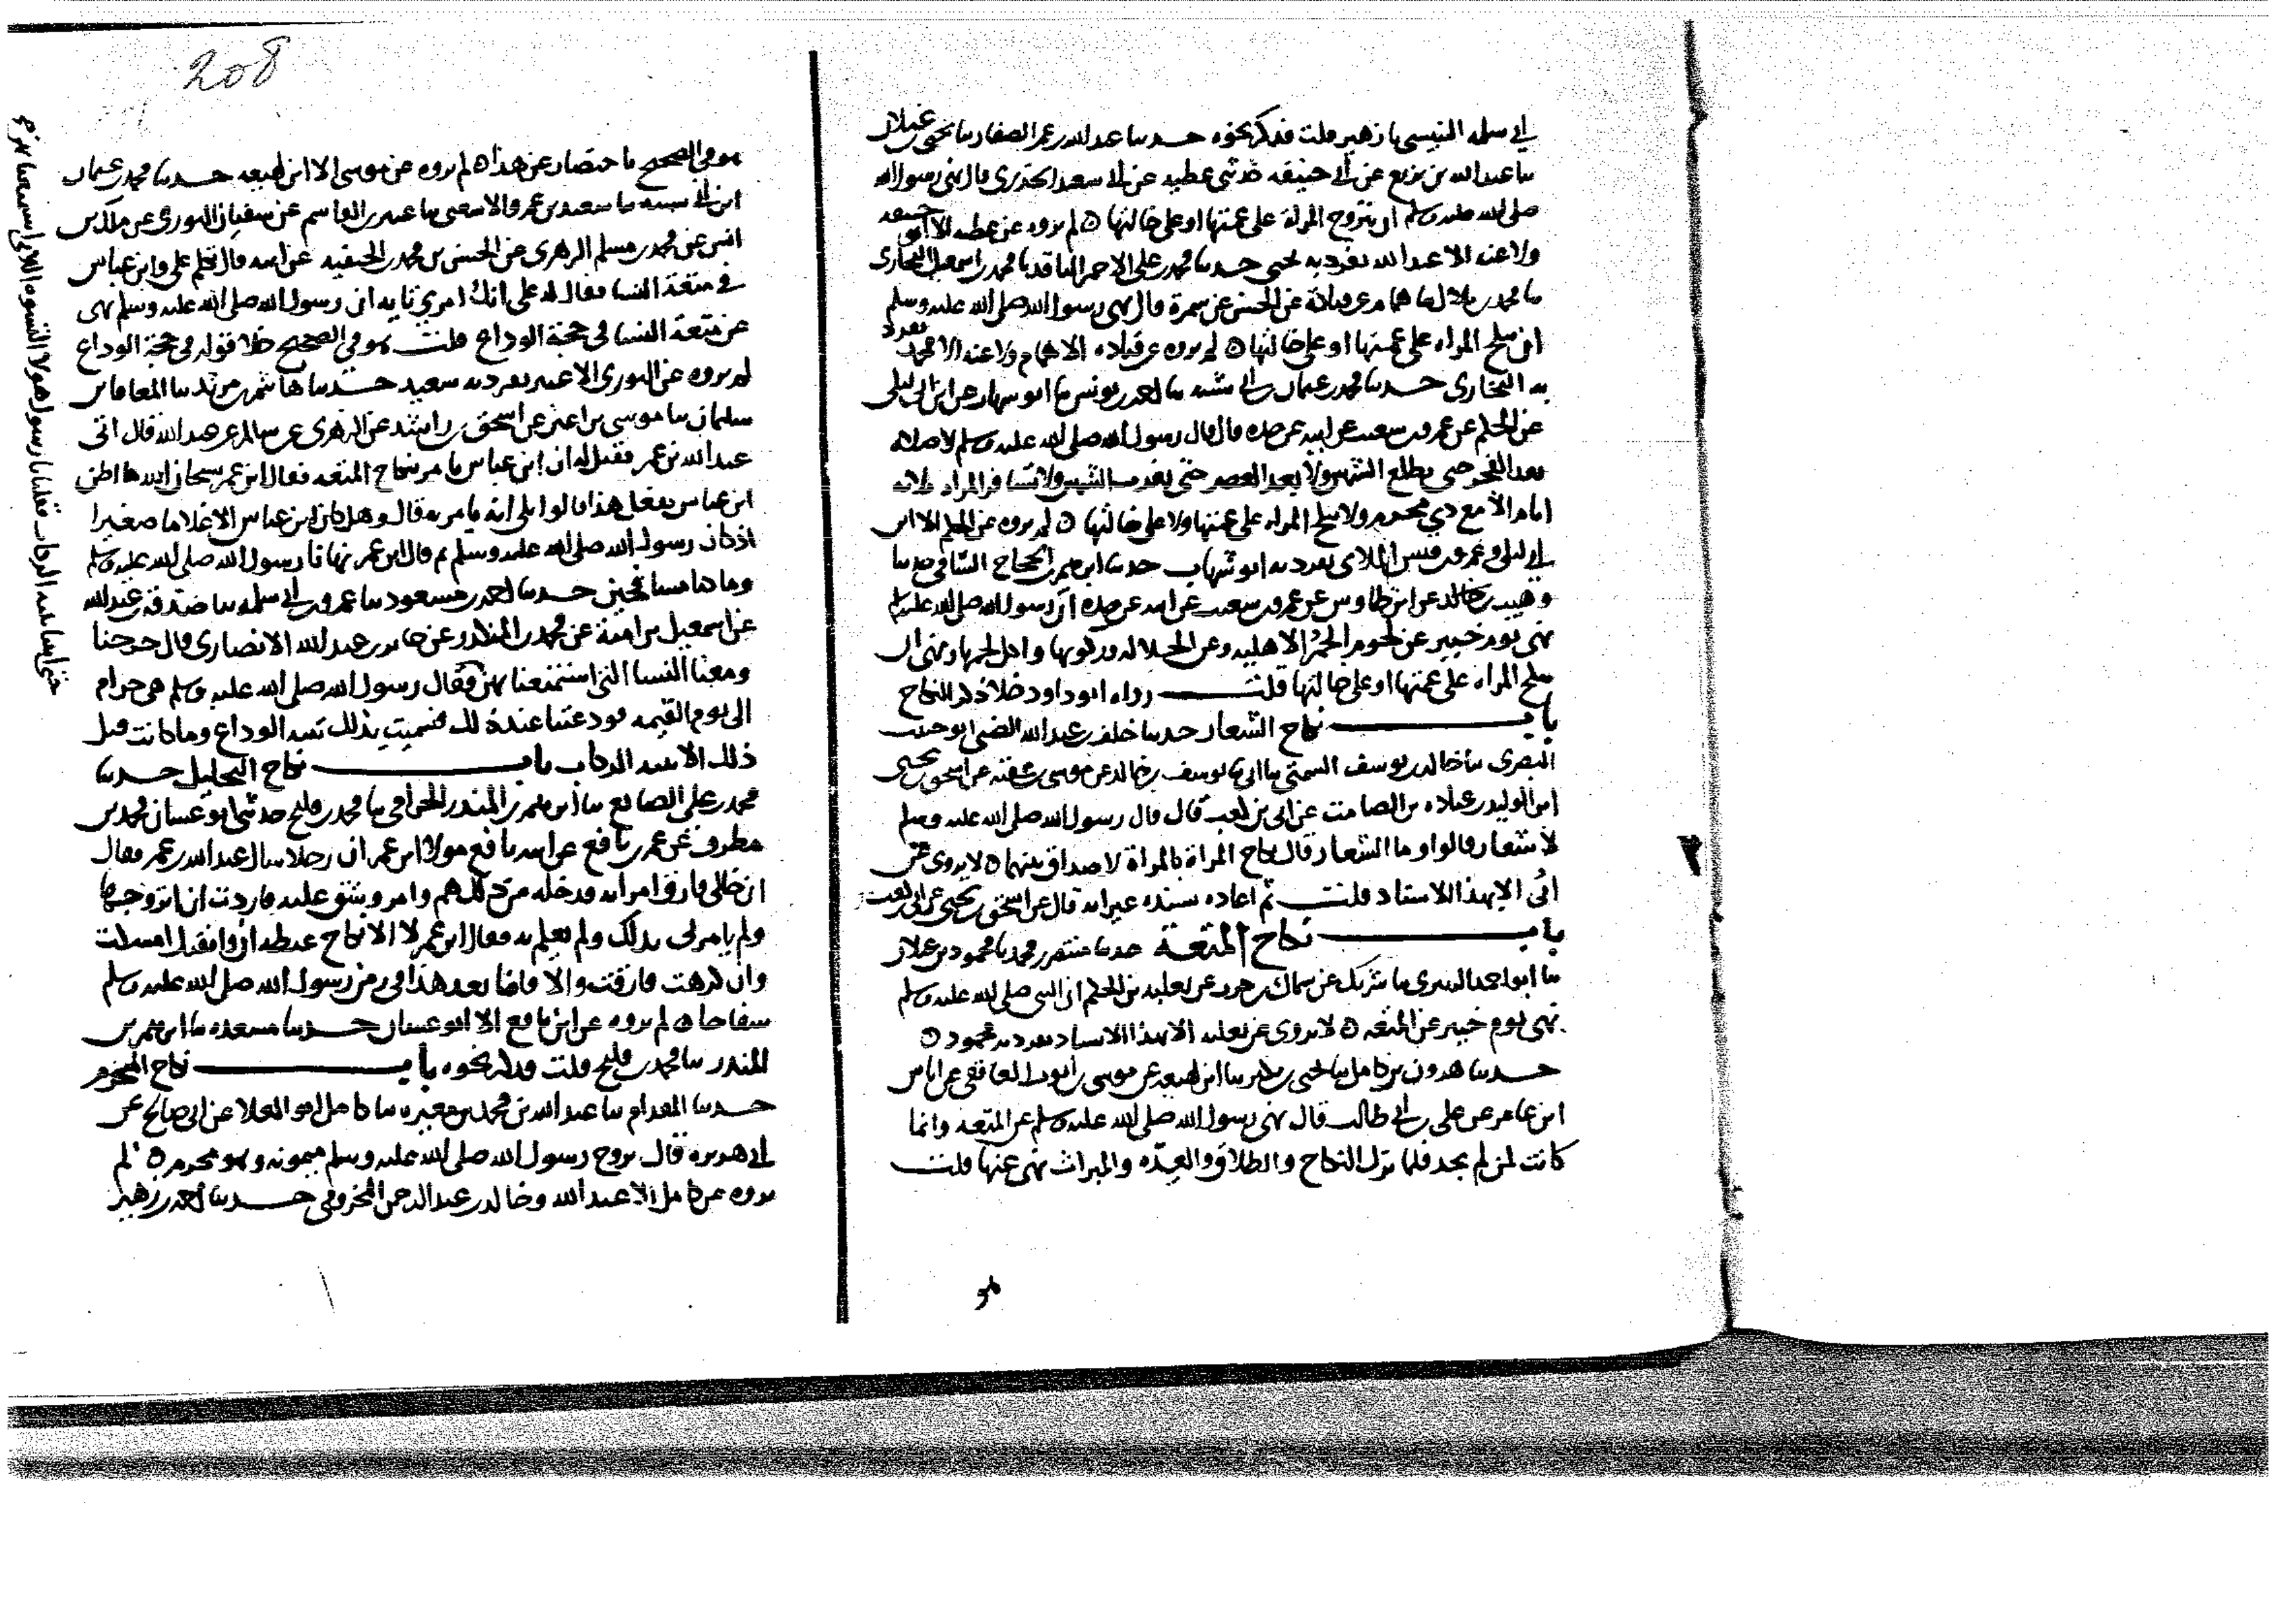 ابى سلمه التنيسى نا زهير قلت فذكر نحوه حدثنا عبد الله بن عمر الصفار نا يحيى بن غيلان
نا عبد الله بن بزيع عن ابى حنيفه حدثنى عطيه عن ابى سعيد الخدرى قال نهى رسول الله
صلى الله عليه وسلم ان تتزوج المراة على عمتها او على خالتها ه لم يروه عن عطيه الا ابو حنيفه
ولا عنه الا عبد الله تفرد به يحيى حدثنا محمد بن على الاحمر الناقد نا محمد بن اسمعيل البخارى
نا محمد بن بلال نا همام عن قتادة عن الحسن عن سمرة قال نهى رسول الله صلى الله عليه وسلم
ان تنكح المراه على عمتها او على خالتها ه لم يروه عن قتاده الا همام ولا عنه الا محمد تفرد
به البخارى حدثنا محمد بن عثمان بن ابى شيبه نا احمد بن يونس نا ابو شهاب عن ابن ابى ليلى
عن الحكم عن عمرو بن شعيب عن ابيه عن جده قال قال رسول الله صلى الله عليه وسلم لا صلاة
بعد الفجر حتى تطلع الشمس ولا بعد العصر حتى تغرب الشمس ولا تسافر المراه ثلاثه
ايام الا مع ذي محرم ولا تنكح المراه على عمتها ولا على خالتها ه لم يروه عن الحكم الا ابن
ابى ليلى وعمرو بن قيس الملائى تفرد به ابو شهاب حدثنا ابرهيم بن الحجاج السامى نا
وهيب بن خالد عن ابن طاوس عن عمرو بن شعيب عن ابيه عن جده ان رسول الله صلى الله عليه وسلم
نهى يوم خيبر عن لحوم الحمر الاهليه وعن الجلاله وركوبها واكل لحمها ونهى ان
تنكح المراه على عمتها او على خالتها قلت رواه ابو داود خلا ذكر النكاح
باب نكاح الشغار حدثنا خلف بن عبد الله الضبى ابو حبيب
البصرى نا خالد بن يوسف السمتى نا ابى يوسف بن خالد عن موسى بن عقبه عن اسحق بن يحيى
ابن الوليد بن عباده بن الصامت عن ابى بن كعب قال قال رسول الله صلى الله عليه وسلم
لا شغار قالوا وما الشغار قال نكاح المراة بالمراة لا صداق بينهما ه لا يروى عن
ابى الا بهذا الاسناد قلت ثم اعاده بسنده غير انه قال عن اسحق بن يحيى عن ابى بن كعب
باب نكاح المتعة حدثنا منتصر بن محمد نا محمود بن غيلان
نا ابو احمد الزبيرى نا شريك عن سماك بن حرب عن ثعلبه بن الحكم ان النبى صلى الله عليه وسلم
نهى يوم خيبر عن المتعه ه لا يروى عن ثعلبه الا بهذا الاسناد تفرد به محمود ه
حدثنا هرون بن كامل نا يحيى بن بكير نا ابن لهيعه عن موسى بن ايوب الغافقى عن اياس
ابن عامر عن على بن ابى طالب قال نهى رسول الله صلى الله عليه وسلم عن المتعه وانما
كانت لمن لم يجد فلما نزل النكاح والطلاق والعده والميراث نهى عنها قلت
هو
208
هو فى الصحيح باختصار عن هذا ه لم يروه عن موسى الا ابن لهيعه حدثنا محمد بن عثمان
ابن ابى شيبه نا سعيد بن عمرو الاشعثى نا عبثر بن القاسم عن سفيان الثورى عن ملك بن
انس عن محمد بن مسلم الزهرى عن الحسن بن محمد بن الحنفيه عن ابيه قال تكلم على وابن عباس
فى متعة النسا فقال له على انك امرؤ تايه ان رسول الله صلى الله عليه وسلم نهى
عن متعة النسا فى حجة الوداع قلت هو فى الصحيح خلا قوله فى حجة الوداع
لم يروه عن الثورى الا عبثر تفرد به سعيد حدثنا هاشم بن مرثد نا المعافا بن
سليمان نا موسى بن اعين عن اسحق بن راشد عن الزهرى عن سالم بن عبد الله قال اتى
عبد الله بن عمر فقيل له ان ابن عباس يامر بنكاح المتعه فقال ابن عمر سبحان الله ما اظن
ابن عباس يفعل هذا قالوا بلى انه يامر به قال وهل كان ابن عباس الا غلاما صغيرا
اذ كان رسول الله صلى الله عليه وسلم ثم قال ابن عمر نهانا رسول الله صلى الله عليه وسلم
وما كنا مسافحين حدثنا احمد بن مسعود نا عمرو بن ابى سلمه نا صدقه بن عبد الله
عن اسمعيل بن امية عن محمد بن المنكدر عن جابر بن عبد الله الانصارى قال خرجنا
ومعنا النسا التى استمتعنا بهن فقال رسول الله صلى الله عليه وسلم هى حرام
الى يوم القيمه فودعننا عند ذلك فسميت بذلك ثنيه الوداع وما كانت قبل
ذلك الا ثنيه الركاب باب نكاح التحليل حدثنا
محمد بن على الصائغ نا ابرهيم بن المنذر الحزامى نا محمد بن فليح حدثنى ابو غسان محمد بن
مطرف عن عمر بن نافع عن ابيه نافع مولى ابن عمر ان رجلا سال عبد الله بن عمر فقال
ان خالى فارق امراته فدخله من ذلك هم وامر وشق عليه فاردت ان اتزوجها
ولم يامرنى بذلك ولم يعلم به فقال ابن عمر لا الا نكاح غبطه ان وافقتك امسكت
وان كرهت فارقت والا فانا نعد هذا فى زمن رسول الله صلى الله عليه وسلم
سفاحا ه لم يروه عن ابن نافع الا ابو غسان حدثنا مسعده نا ابرهيم بن
المنذر نا محمد بن فليح قلت فذكر نحوه باب نكاح المحرم
حدثنا المقدام نا عبد الله بن محمد بن مغيره نا كامل ابو العلا عن ابى صالح عن
ابى هريره قال تزوج رسول الله صلى الله عليه وسلم ميمونه وهو محرم ه لم
يروه عن كامل الا عبد الله وخالد بن عبد الرحمن المخزومى حدثنا احمد بن زهير
حتى اتينا ثنيه الركاب فقلنا يا رسول الله هولا النسوه اللاتى استمتعنا بهن